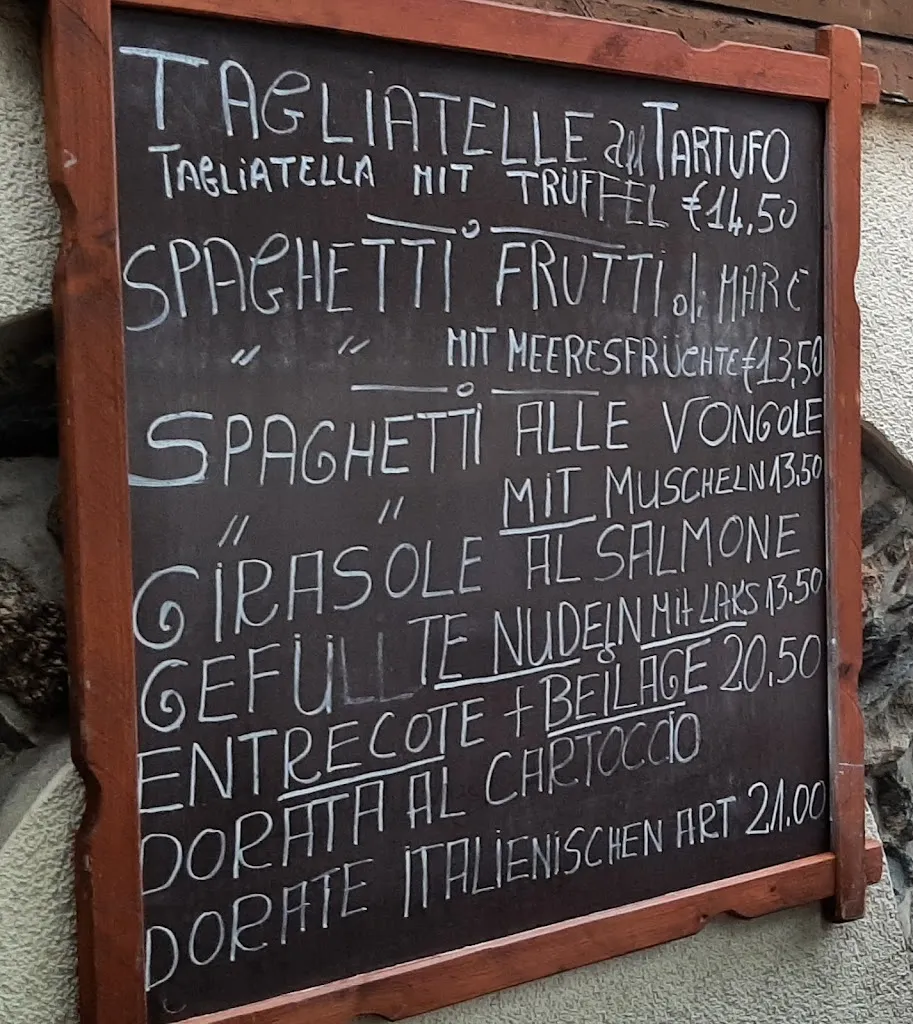 TAGLIATELLE al TARTUFO
TAGLIATELLA MIT TRÜFFEL €14,50
SPAGHETTI FRUTTI di MARE
" " MIT MEERESFRÜCHTE €13,50
SPAGHETTI ALLE VONGOLE
" " MIT MUSCHELN 13.50
GIRASOLE AL SALMONE
GEFÜLLTE NUDELN Mit LAKS 13.50
ENTRECOTE + BEILAGE 20,50
DORATA AL CARTOCCIO
DORATE ITALIENISCHEN ART 21.00